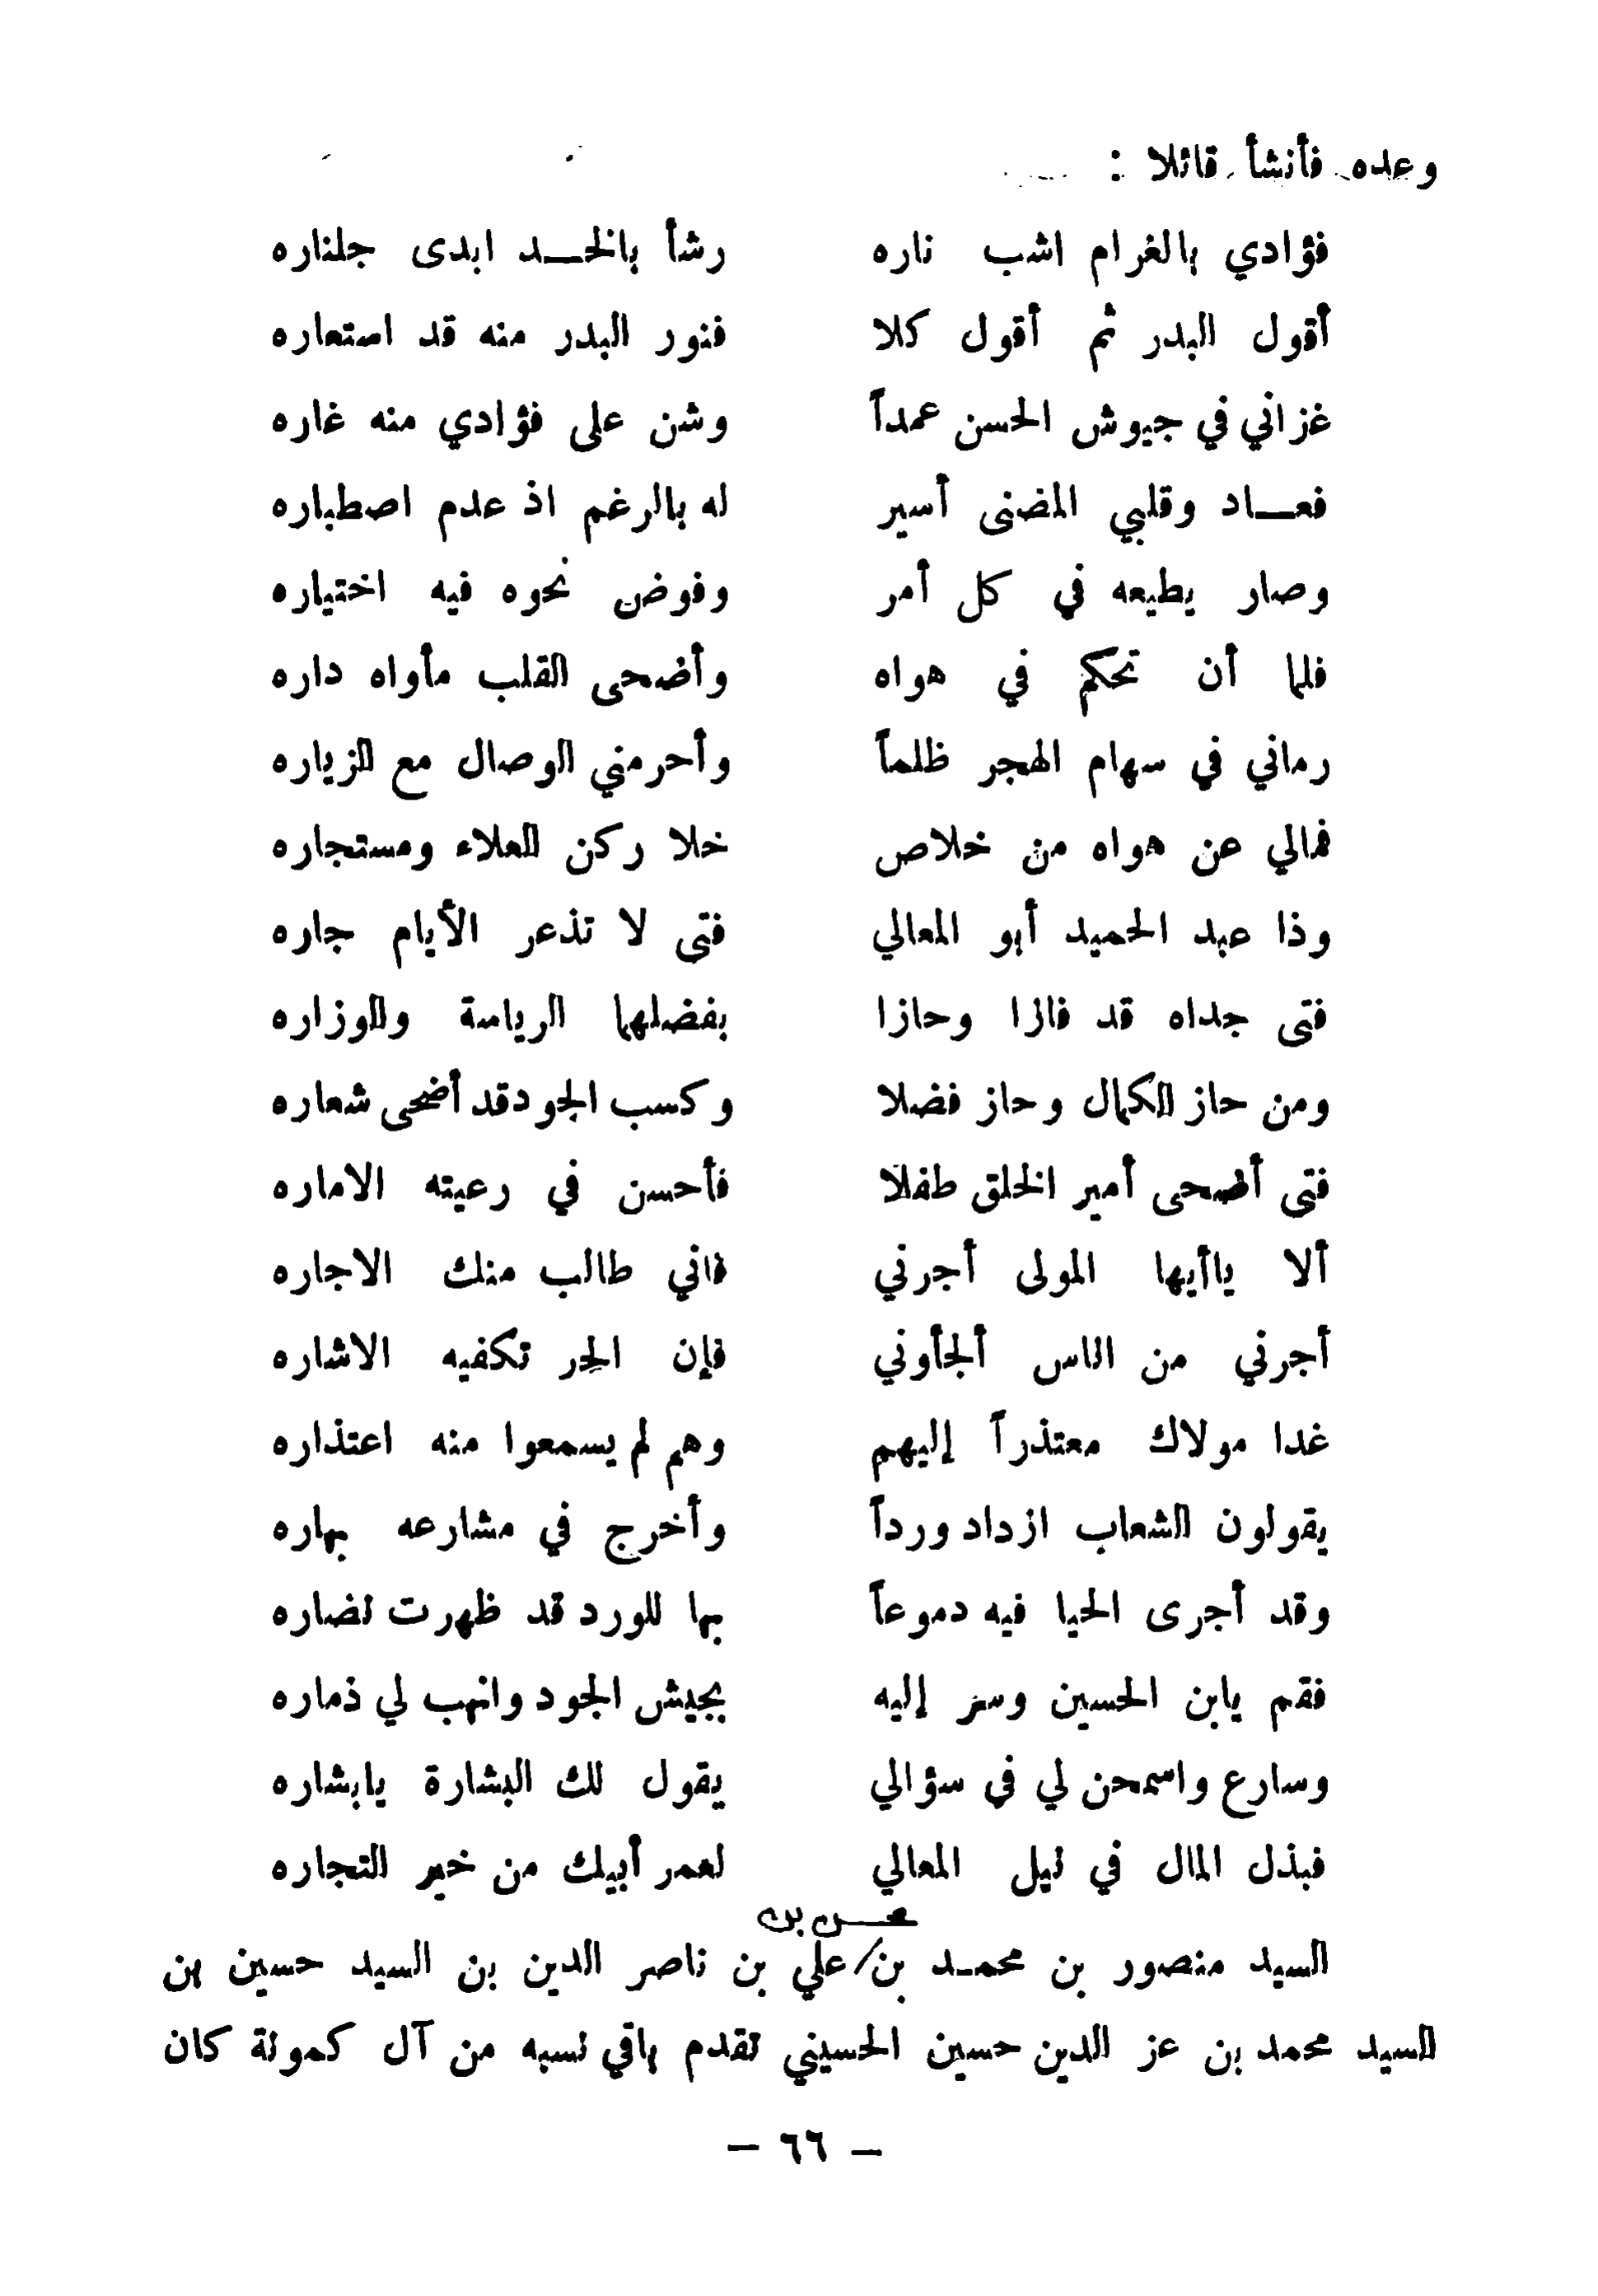 وعده فأنشأ قائلا :
فؤادي بالغرام اشب ناره رشأ بالخد ابدى جلناره
أقول البدر ثم أقول كلا فنور البدر منه قد استعاره
غزاني في جيوش الحسن عمداً وشن على فؤادي منه غاره
فعاد وقلبي المضنى أسير له بالرغم اذ عدم اصطباره
وصار يطيعه في كل أمر وفوض نحوه فيه اختياره
فلما أن تحكم في هواه وأضحى القلب مأواه داره
رماني في سهام الهجر ظلماً وأحرمني الوصال مع الزياره
فمالي عن هواه من خلاص خلا ركن العلاء ومستجاره
وذا عبد الحميد أبو المعالي فتى لا تذعر الأيام جاره
فتى جداه قد فازا وحازا بفضلهما الرياسة والوزاره
ومن حاز الكمال وحاز فضلا وكسب الجود قد أضحى شعاره
فتى أضحى أمير الخلق طفلا فأحسن في رعيته الاماره
ألا ياأيها المولى أجرني فاني طالب منك الاجاره
أجرني من اناس ألجأوني فإن الحر تكفيه الاشاره
غدا مولاك معتذراً إليهم وهم لم يسمعوا منه اعتذاره
يقولون الشعاب ازداد ورداً وأخرج في مشارعه بهاره
وقد أجرى الحيا فيه دموعاً بها للورد قد ظهرت نضاره
فقم يابن الحسين وسر إليه بجيش الجود وانهب لي ذماره
وسارع واسمحن لي في سؤالي يقول لك البشارة يابشاره
فبذل المال في نيل المعالي لعمر أبيك من خير التجاره
محسن بن
السيد منصور بن محمد بن/علي بن ناصر الدين بن السيد حسين بن
السيد محمد بن عز الدين حسين الحسيني تقدم باقي نسبه من آل كمونة كان
— ٦٦ —